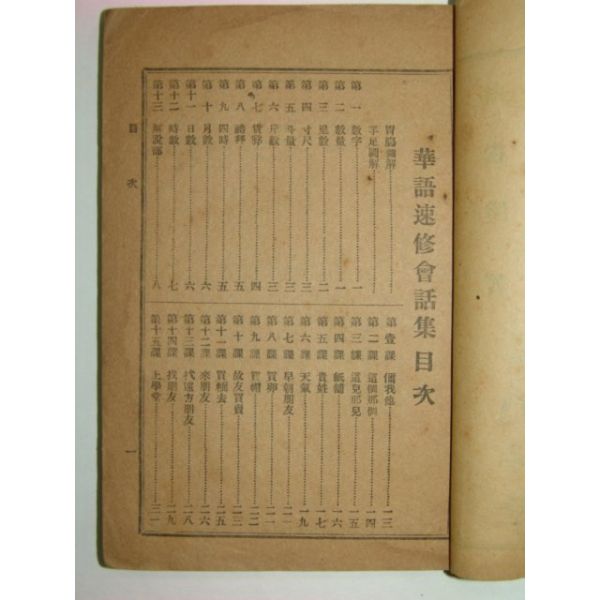 華語速修會話集目次
胃腸圖解
手足圖解
第一 數字 一
第二 數量 一
第三 里數 二
第四 寸尺 三
第五 斗量 三
第六 斤數 三
第七 貨幣 四
第八 禮拜 五
第九 四時 五
第十 月數 六
第十一 日數 六
第十二 時數 七
第十三 解說部 八
第壹課 儞我他 一三
第二課 這個那個 一四
第三課 這兒那兒 一五
第四課 紙鋪 一六
第五課 貴姓 一七
第六課 天氣 一九
第七課 早朝朋友 二一
第八課 買卵 二一
第九課 買帽 二二
第十課 故友買賣 二三
第十一課 買 去 二五
第十二課 來朋友 二六
第十三課 找遠方朋友 二八
第十四課 找朋友 二九
第十五課 上學堂 三一
目次 一